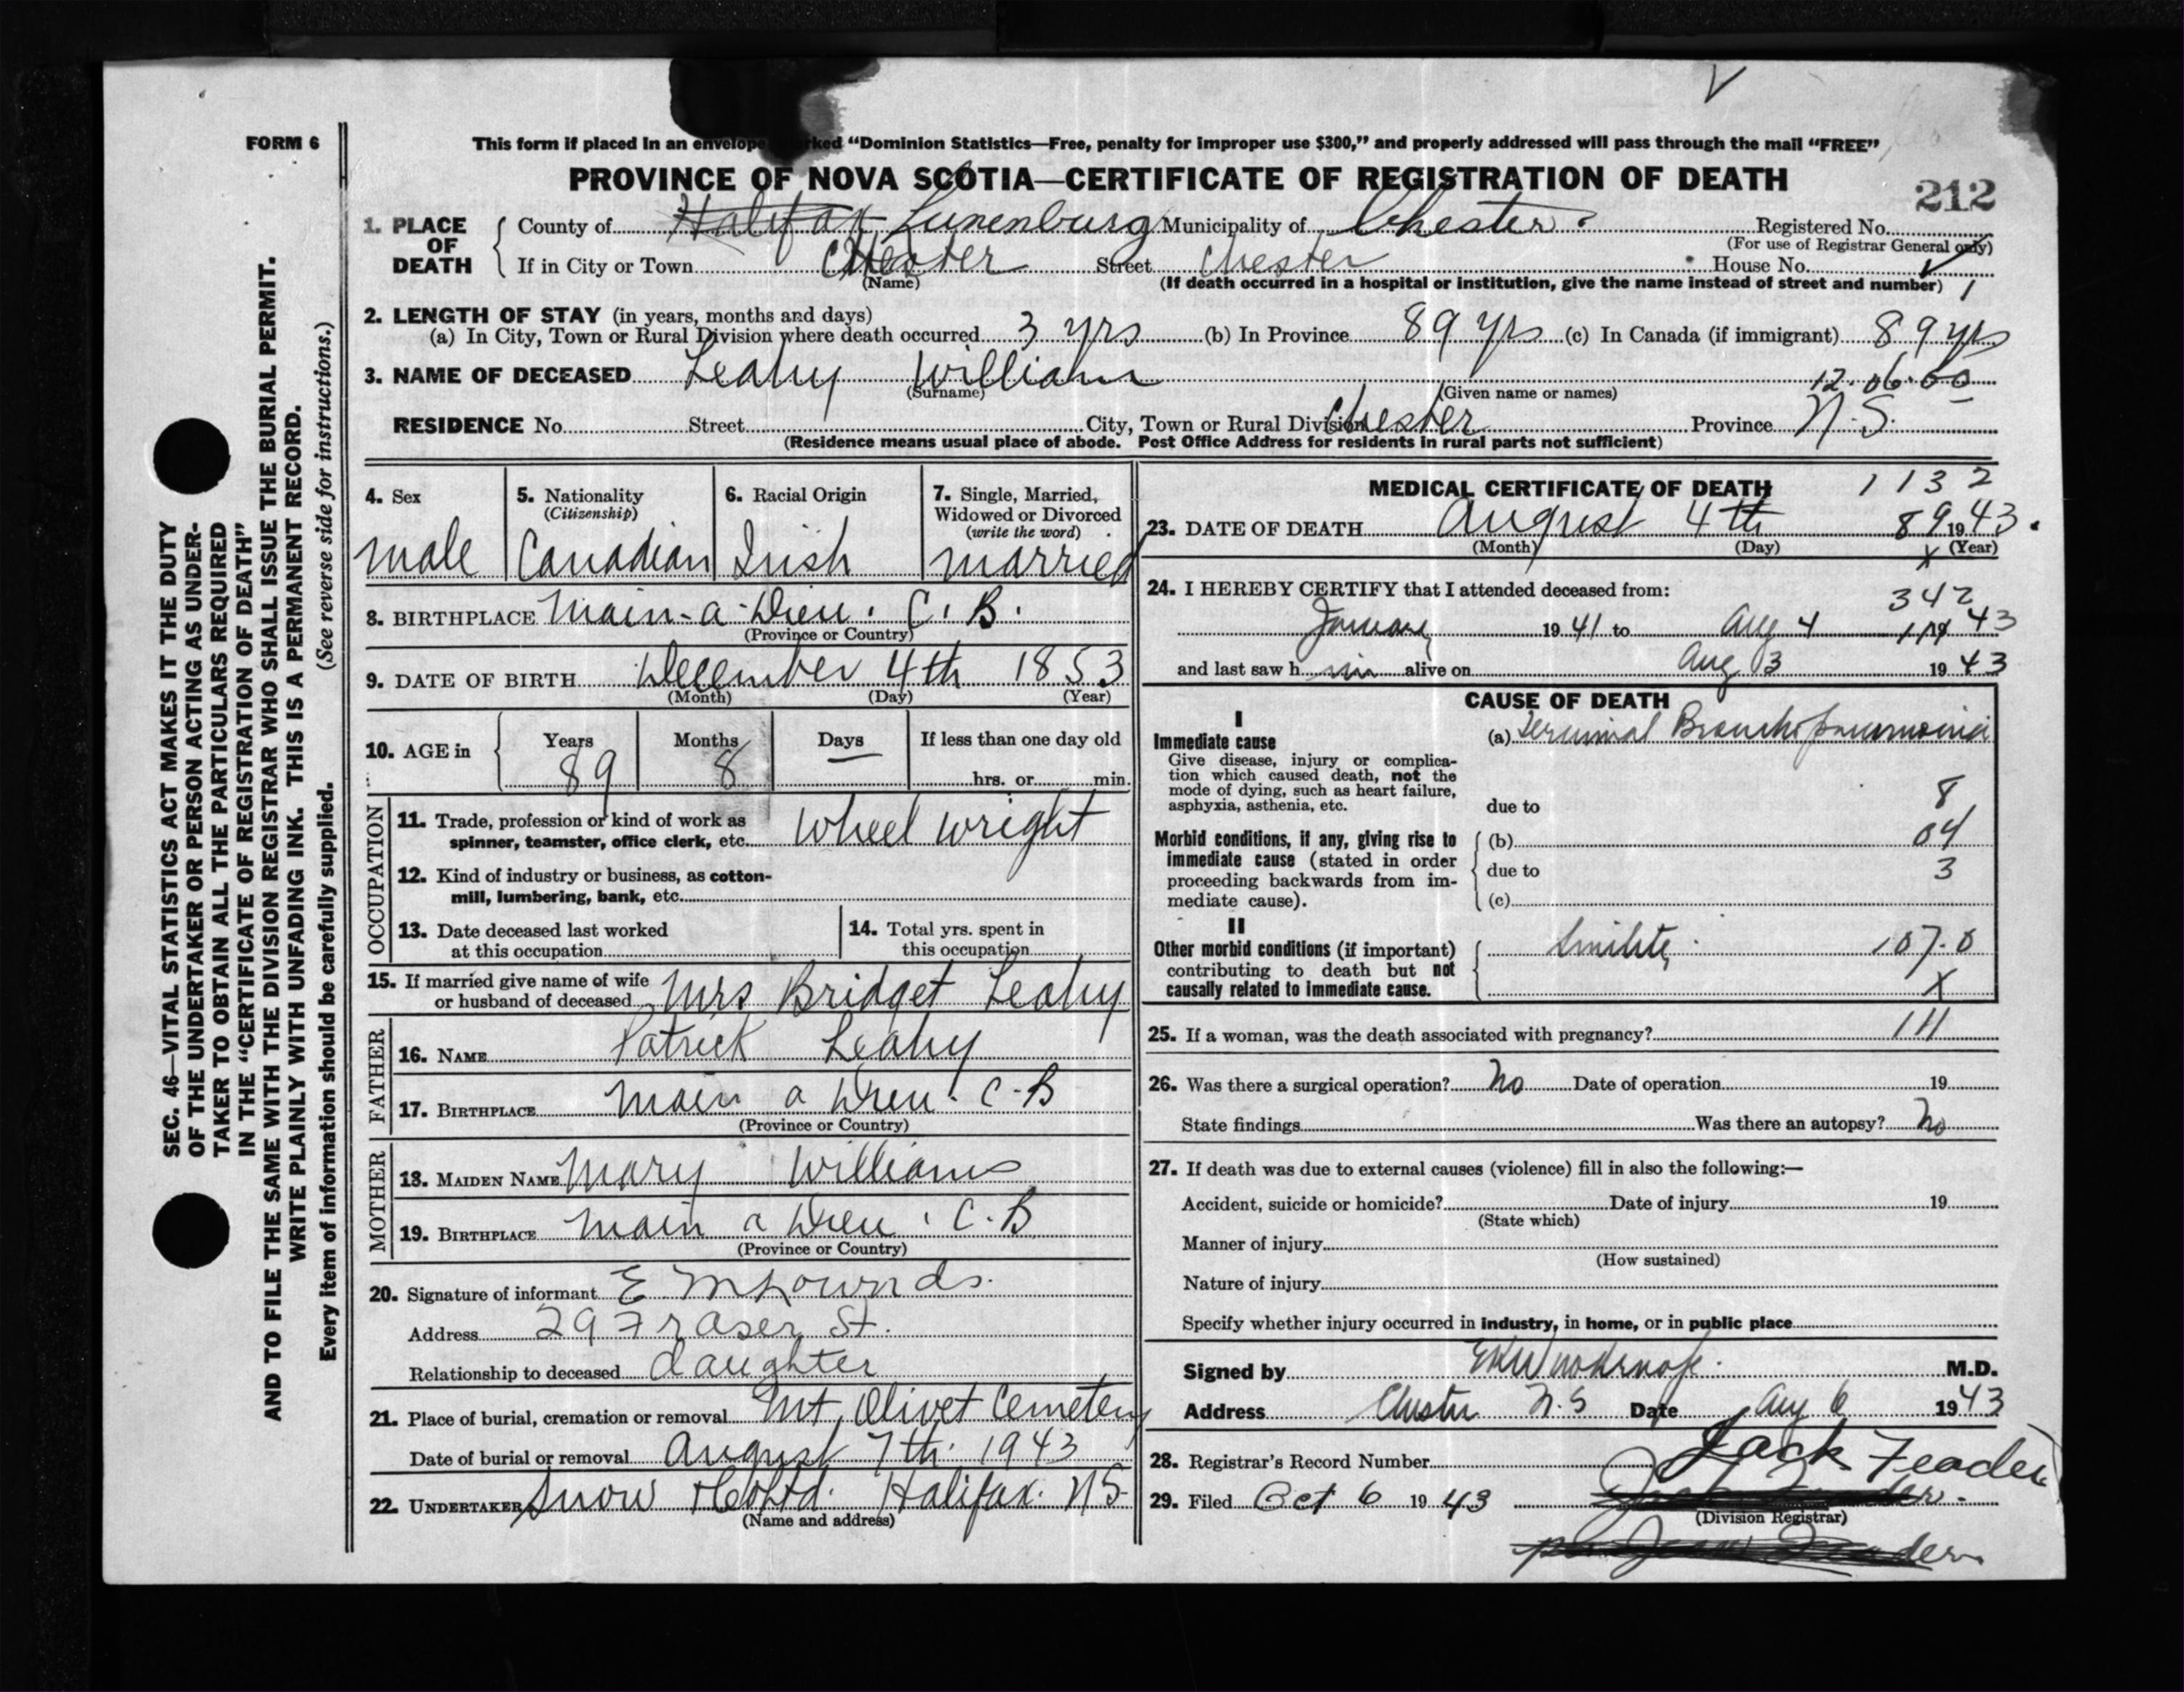 FORM 6
This form if placed in an envelope marked “Dominion Statistics—Free, penalty for improper use $300,” and properly addressed will pass through the mail “FREE”
PROVINCE OF NOVA SCOTIA—CERTIFICATE OF REGISTRATION OF DEATH
212
1. PLACE OF DEATH
County of Halifax Lunenburg Municipality of Chester Registered No.
(For use of Registrar General only)
If in City or Town Chester Street Chester House No.
(Name)
(If death occurred in a hospital or institution, give the name instead of street and number)
2. LENGTH OF STAY (in years, months and days)
(a) In City, Town or Rural Division where death occurred 3 yrs (b) In Province 89 yrs (c) In Canada (if immigrant) 89 yrs
3. NAME OF DECEASED Leahy William 12.06.60
(Surname) (Given name or names)
RESIDENCE No. Street City, Town or Rural Division Chester Province N.S.
(Residence means usual place of abode. Post Office Address for residents in rural parts not sufficient)
4. Sex
male
5. Nationality
(Citizenship)
Canadian
6. Racial Origin
Irish
7. Single, Married,
Widowed or Divorced
(write the word)
married
8. BIRTHPLACE Main-a-Dieu. C. B.
(Province or Country)
9. DATE OF BIRTH December 4th 1853
(Month) (Day) (Year)
10. AGE in
Years Months Days If less than one day old
89 8 — hrs. or min.
OCCUPATION
11. Trade, profession or kind of work as
spinner, teamster, office clerk, etc. Wheel wright
12. Kind of industry or business, as cotton-
mill, lumbering, bank, etc.
13. Date deceased last worked
at this occupation
14. Total yrs. spent in
this occupation
15. If married give name of wife
or husband of deceased Mrs Bridget Leahy
FATHER
16. NAME Patrick Leahy
17. BIRTHPLACE Main a Dieu. C-B
(Province or Country)
MOTHER
18. MAIDEN NAME Mary Williams
19. BIRTHPLACE Main a Dieu. C.B
(Province or Country)
20. Signature of informant E
Address 29 Fraser St.
Relationship to deceased daughter
21. Place of burial, cremation or removal Mt. Olivet Cemetery
Date of burial or removal August 7th. 1943
22. UNDERTAKER Snow & Co Ltd. Halifax. NS
(Name and address)
MEDICAL CERTIFICATE OF DEATH
1132
23. DATE OF DEATH August 4th 89 1943.
(Month) (Day) (Year)
x
24. I HEREBY CERTIFY that I attended deceased from:
342
January 1941 to Aug 4 43
and last saw h im alive on Aug 3 1943
CAUSE OF DEATH
I
Immediate cause
Give disease, injury or complica-
tion which caused death, not the
mode of dying, such as heart failure,
asphyxia, asthenia, etc.
(a) Terminal Bronchopneumonia
due to 8
Morbid conditions, if any, giving rise to
immediate cause (stated in order
proceeding backwards from im-
mediate cause).
(b) 04
due to 3
(c)
II
Other morbid conditions (if important)
contributing to death but not
causally related to immediate cause.
Senility. 107.0
X
25. If a woman, was the death associated with pregnancy? 111
26. Was there a surgical operation? No Date of operation 19
State findings Was there an autopsy? No
27. If death was due to external causes (violence) fill in also the following:—
Accident, suicide or homicide? Date of injury 19
(State which)
Manner of injury
(How sustained)
Nature of injury
Specify whether injury occurred in industry, in home, or in public place
Signed by M.D.
Address Chester N.S Date Aug 6 1943
28. Registrar's Record Number
Jack Feader
29. Filed Oct 6 1943
(Division Registrar)
SEC. 46—VITAL STATISTICS ACT MAKES IT THE DUTY
OF THE UNDERTAKER OR PERSON ACTING AS UNDER-
TAKER TO OBTAIN ALL THE PARTICULARS REQUIRED
IN THE “CERTIFICATE OF REGISTRATION OF DEATH”
AND TO FILE THE SAME WITH THE DIVISION REGISTRAR WHO SHALL ISSUE THE BURIAL PERMIT.
WRITE PLAINLY WITH UNFADING INK. THIS IS A PERMANENT RECORD.
Every item of information should be carefully supplied. (See reverse side for instructions.)